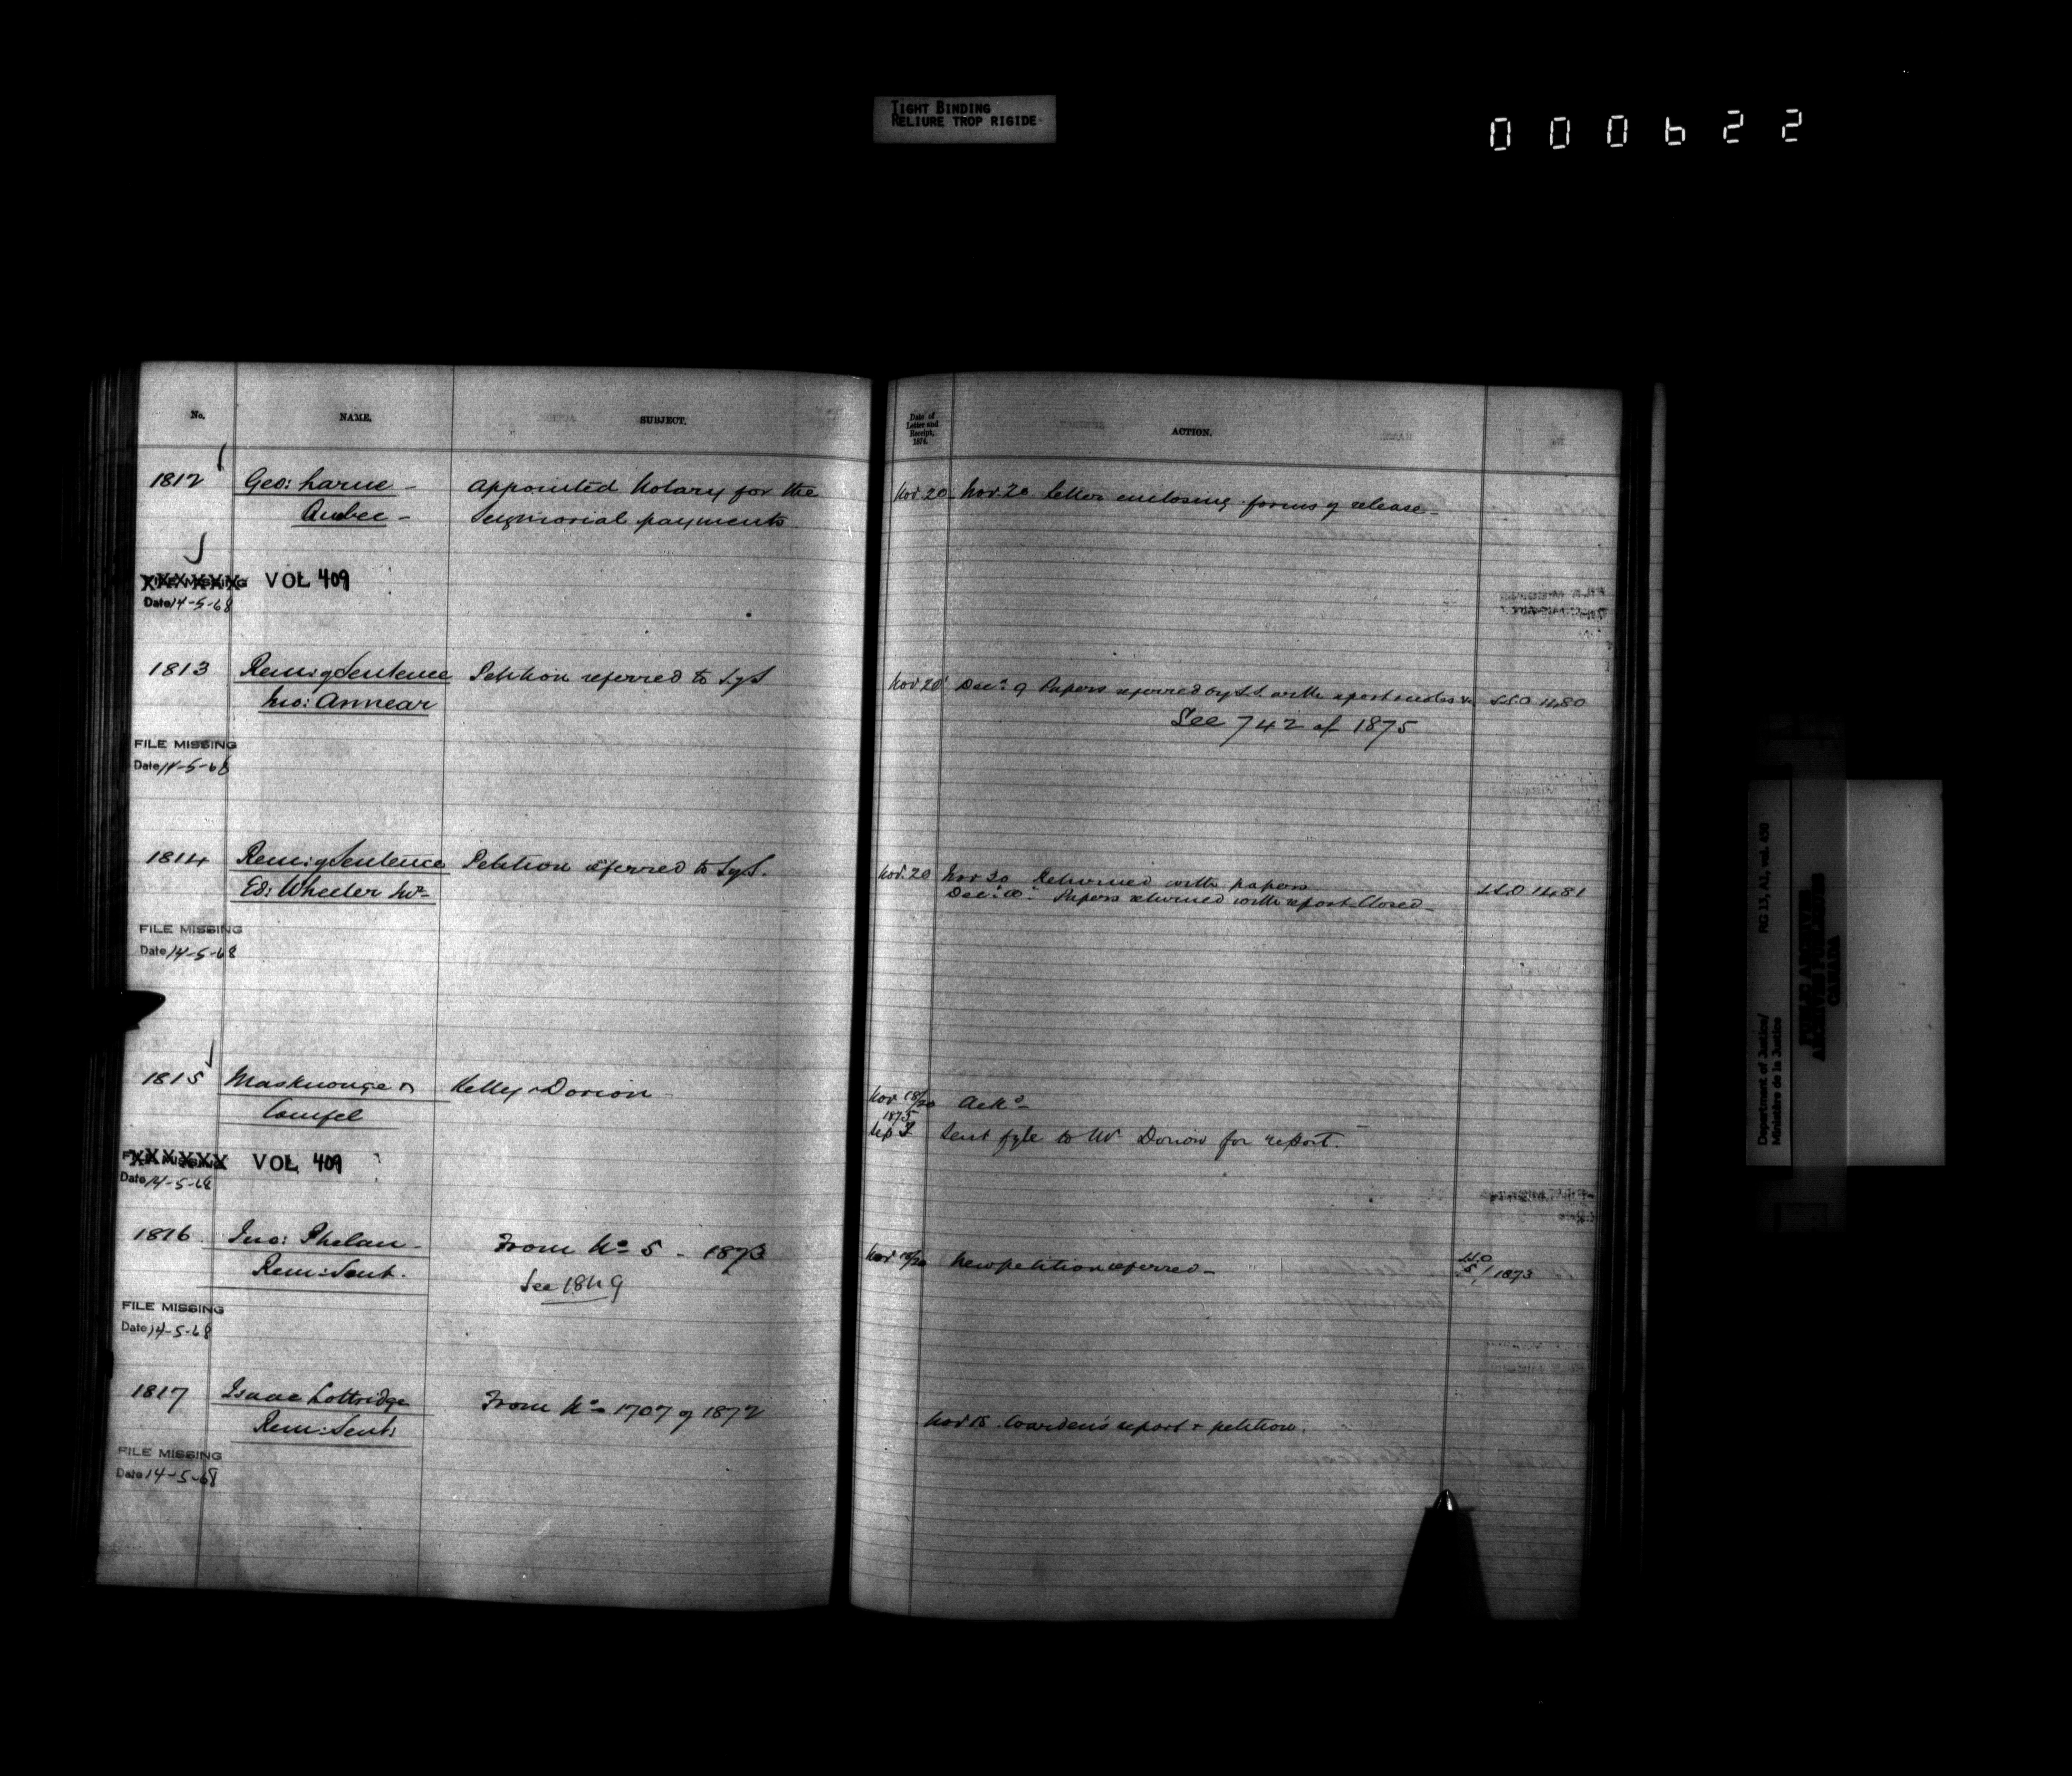 TIGHT BINDING
RELIURE TROP RIGIDE
000622
No.
NAME.
SUBJECT.
1812
Geo: Larue -
Quebec -
Appointed Notary for the
Seignorial payments
FILE MISSING VOL 409
Date 14-5-68
1813
Rem: of Sentence
Jno: Annear
Petition referred to
FILE MISSING
Date 14-5-68
1814
Rem: of Sentence
Ed: Wheeler
Petition referred to
FILE MISSING
Date 14-5-68
1815
Maskinonge
Kelly v Dorion
FILE MISSING VOL 409
Date 14-5-68
1816
Jno: Phelan -
Rem: Sent.
From No 5 - 1873
See 1849
FILE MISSING
Date 14-5-68
1817
Isaac Lottridge
Rem: Sent:
From No 1707 of 1872
FILE MISSING
Date 14-5-68
Date of
Letter and
Receipt,
1874.
ACTION.
Nov 20 Nov 20 Letter enclosing forms of release -
Nov 20 Dec: 9 Papers with S.S.O 1480
See 742 of 1875
Nov. 20 Nov 20 Returned with papers
Dec: 10: Papers returned with report Closed - S.S.O 1481
Nov 18/20 Ack
1875
Sep Sent fyle to Mr Dorion for report.
Nov 18/20 New petition referred - S.S.O
5/1873
Nov 18 Warden's report & petition.
Department of Justice/
Ministère de la Justice
RG 13, A1, vol. 430
PUBLIC ARCHIVES
ARCHIVES PUBLIQUES
CANADA